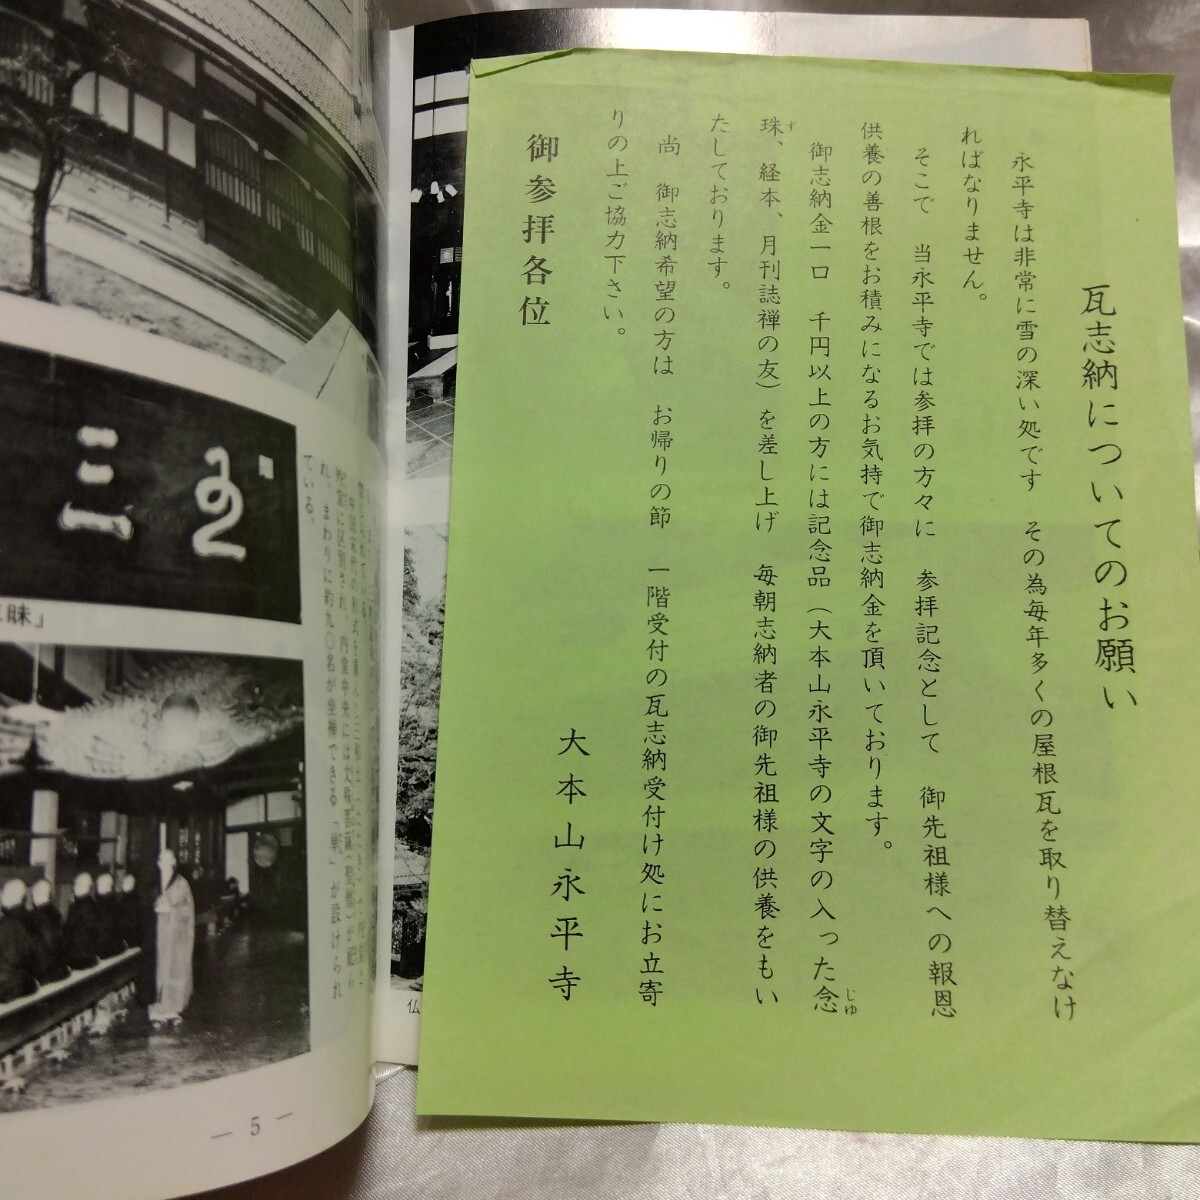 瓦志納についてのお願い
永平寺は非常に雪の深い処です その為毎年多くの屋根瓦を取り替えなけ
ればなりません。
そこで 当永平寺では参拝の方々に 参拝記念として 御先祖様への報恩
供養の善根をお積みになるお気持で御志納金を頂いております。
御志納金一口 千円以上の方には記念品（大本山永平寺の文字の入った念
じゆ
珠、経本、月刊誌禅の友）を差し上げ 毎朝志納者の御先祖様の供養をもい
ず
たしております。
尚 御志納希望の方は お帰りの節 一階受付の瓦志納受付け処にお立寄
りの上ご協力下さい。
大本山永平寺
御参拝各位
仏
外堂に区別され、内堂中央には文殊菩薩
れ、まわりに約九〇名が坐禅できる「単」が設けられ
ている。
三
昧」
— 5 —